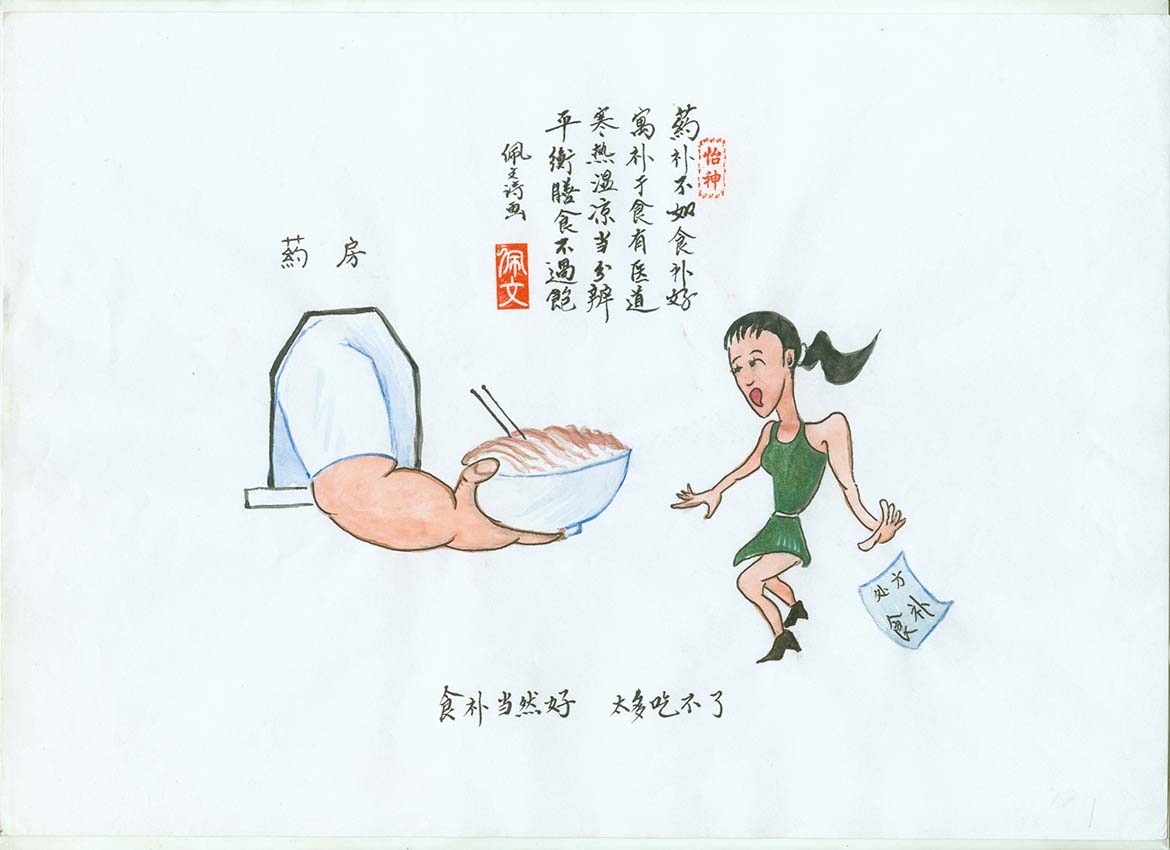 怡神
药补不如食补好
寓补于食有医道
寒热温凉当分辨
平衡膳食不过饱
佩文诗画
佩文
药房
处方
食补
食补当然好 太多吃不了